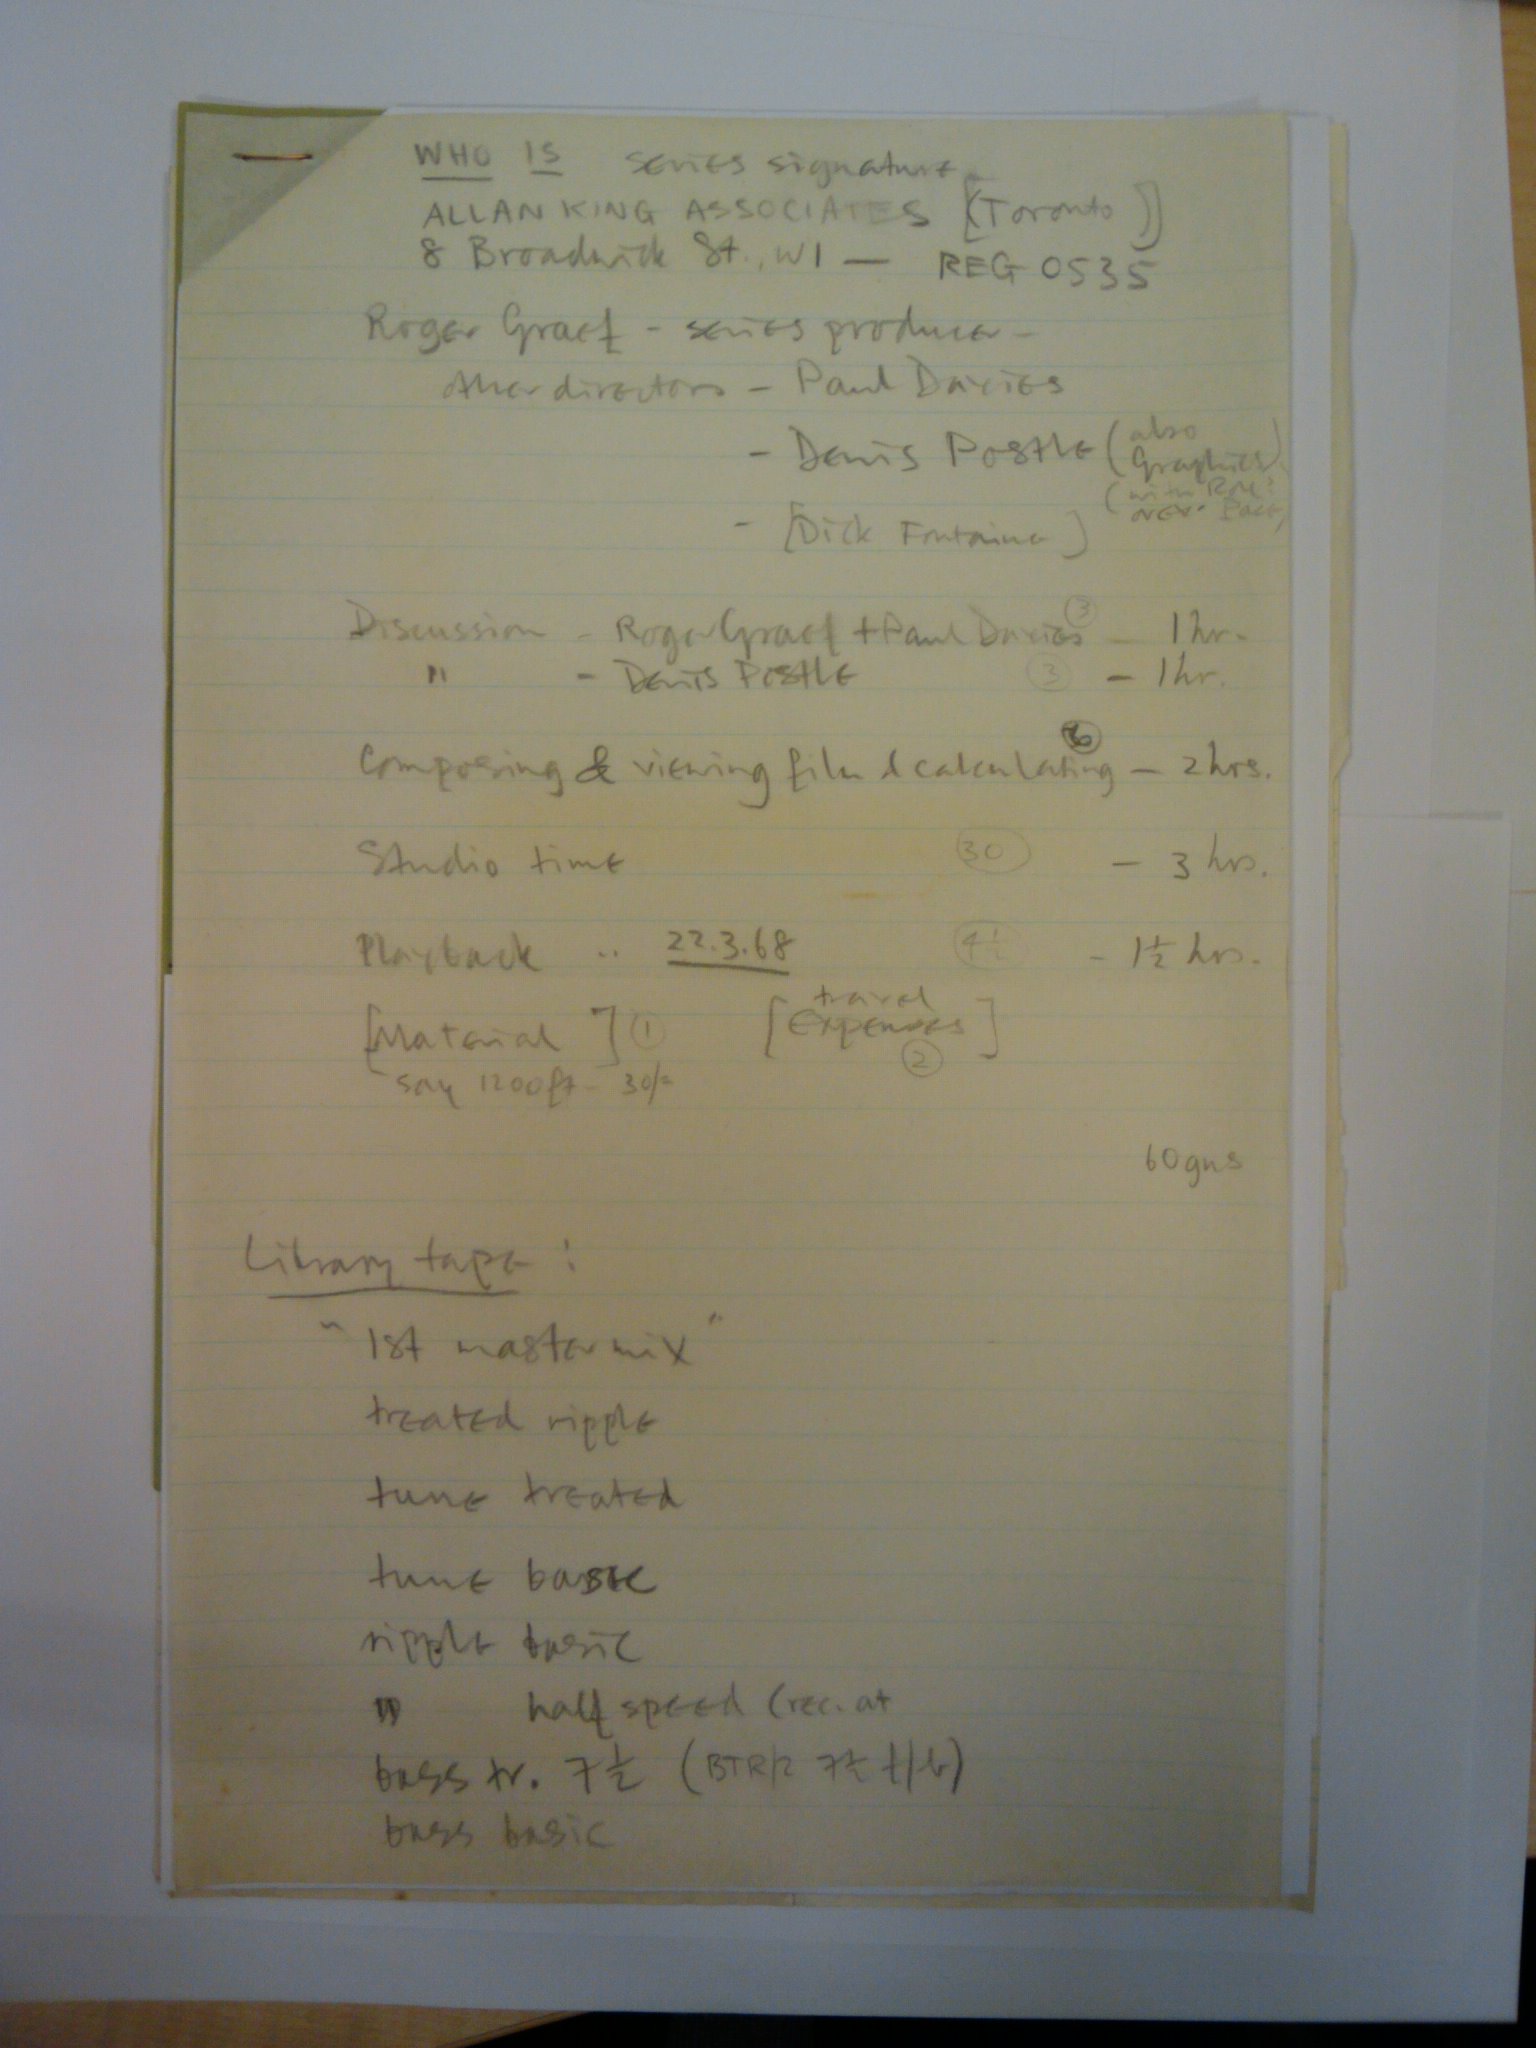 WHO IS series signature
ALLAN KING ASSOCIATES [(Toronto)]
8 Broadwick St., W1 — REG 0535
Roger Graef - series producer -
other directors - Paul Davies
- Denis Postle (also Graphics)
(with
- [Dick Fontaine]
Discussion - Roger Graef + Paul Davies ③ - 1 hr.
" - Denis Postle ③ - 1 hr.
Composing & viewing film & calculating ⑥ - 2 hrs.
Studio time ㉚ - 3 hrs.
Playback .. 22.3.68 (4½) - 1½ hrs.
[Material] ① [travel Expenses] ②
say 1200ft - 30/-
60 gns
Library tape :
"1st master mix"
treated ripple
tune treated
tune basic
ripple basic
" half speed (rec. at
bass tr. 7½ (BTR/2 7½ t/b)
bass basic